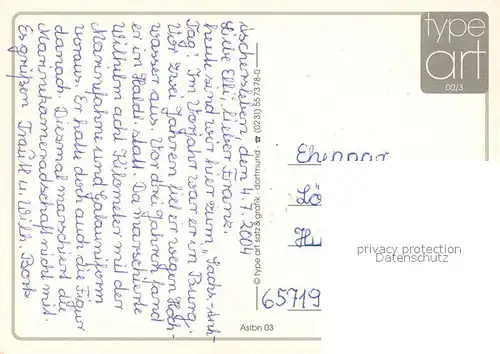 Aschersleben, den 4.7.2004
Liebe Elli, lieber Franz.
heute sind wir hier zum „Sachs.-Anh.-
Tag". Im Vorjahr war er in Burg.
Vor zwei Jahren fiel er wegen Hoch-
wasser aus. Vor drei Jahren fand
er in Hald. statt. Da marschierte
Wilhelm acht Kilometer mit der
Marinefahne und Galauniform
voraus. Er hatte doch auch die Figur
danach. Diesmal marschiert die
Marinekameradschaft nicht mit.
Es grüßen Traudl u. Wilh. Bock
© type art satz & grafik · dortmund · ☎ (0231) 557378-0
type
art
00/3
Ehepaar
Lö
65719
privacy protection
Datenschutz
Asibn 03